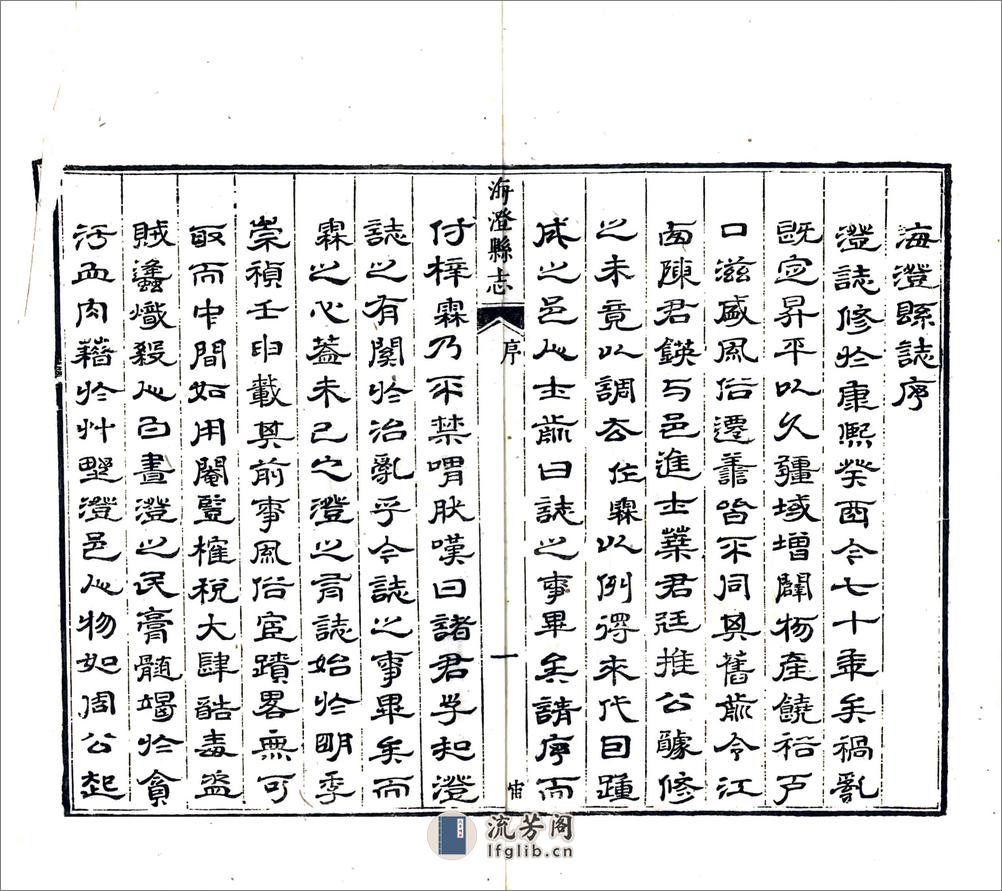 海澄縣誌序
澄誌修於康熙癸酉今七十年矣禍亂
既定昇平以久疆域增闢物產饒裕戶
口滋盛風俗遷善皆不同其舊前令江
西陳君鍈与邑進士葉君廷推公醵修
之未竟以調去任霖以例得來代因踵
成之邑之士前曰誌之事畢矣請序而
海澄縣志
序
一
付梓霖乃不禁喟肰嘆曰諸君子知澄
誌之有關於治亂乎今誌之事畢矣而
霖之心蓋未已也澄之有誌始於明季
崇禎壬申載其前事風俗宦蹟畧無可
取而中間如用閹豎榷稅大肆酷毒盜
賊蠭熾殺人白晝澄之民膏髓竭於貪
污血肉藉於艸野澄邑人物如周公起
流芳阁
lfglib.cn